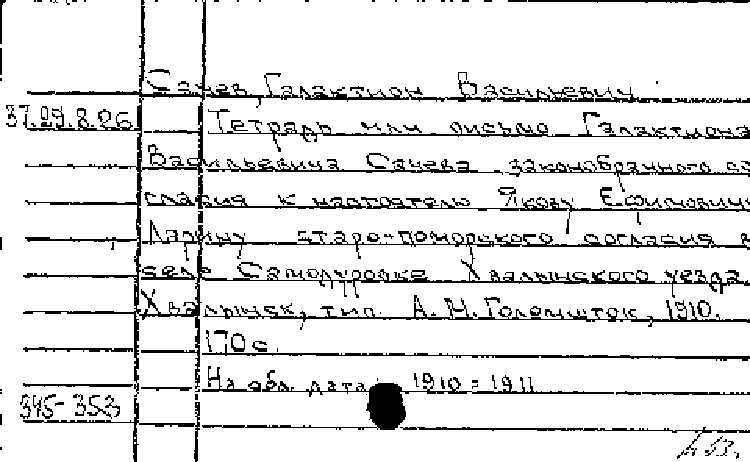 Сачев, Галактион Васильевич
37.29.8.26 Тетрадь или письмо Галактиона
Васильевича Сачева законобрачного со
гласия к настоятелю Якову Ефимовичу
Ларину старо-поморского согласия в
селе Самодуровке Хвалынского уезда.
Хвалынск, тип. А. М. Големшток, 1910.
170 с.
На обл. дата: 1910-1911
345-353